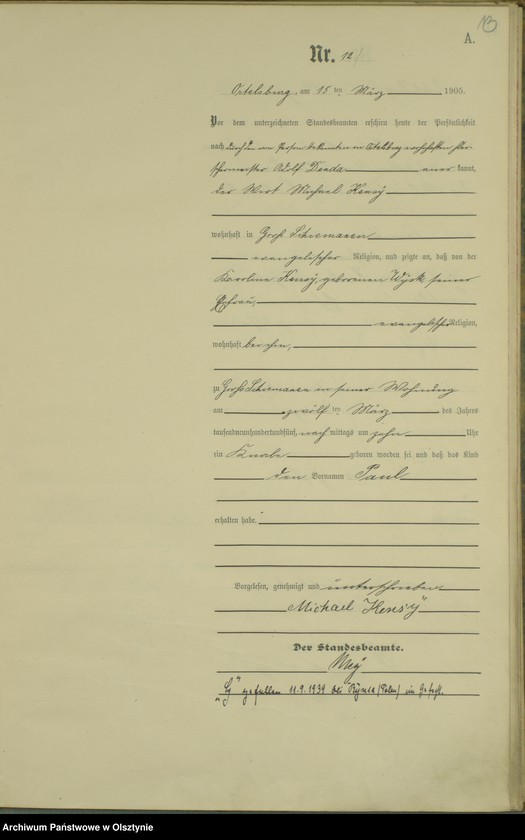 13
A.
Nr. 12
Ortelsburg, am 15 ten März 1905.
Vor dem unterzeichneten Standesbeamten erschien heute der Persönlichkeit
nach durch den von Person bekannten in Ortelsburg wohnhaften
Adolf Denda aner kannt,
der Wirt Michael Kensy
wohnhaft in Groß Schiemanen
evangelischer Religion, und zeigte an, daß von der
Karoline Kensy, geborenen seiner
Ehefrau,
evangelischer Religion,
wohnhaft bei ihm,
zu Groß Schiemanen in seiner Wohnung
am zwölf ten März des Jahres
tausendneunhundertundfünf, nach mittags um zehn Uhr
ein Knabe geboren worden sei und daß das Kind
den Vornamen Paul
erhalten habe.
Vorgelesen, genehmigt und unterschrieben
Michael Kensy
Der Standesbeamte.
gefallen 11.9.1939 bei (Polen) im Gefecht.
Archiwum Państwowe w Olsztynie